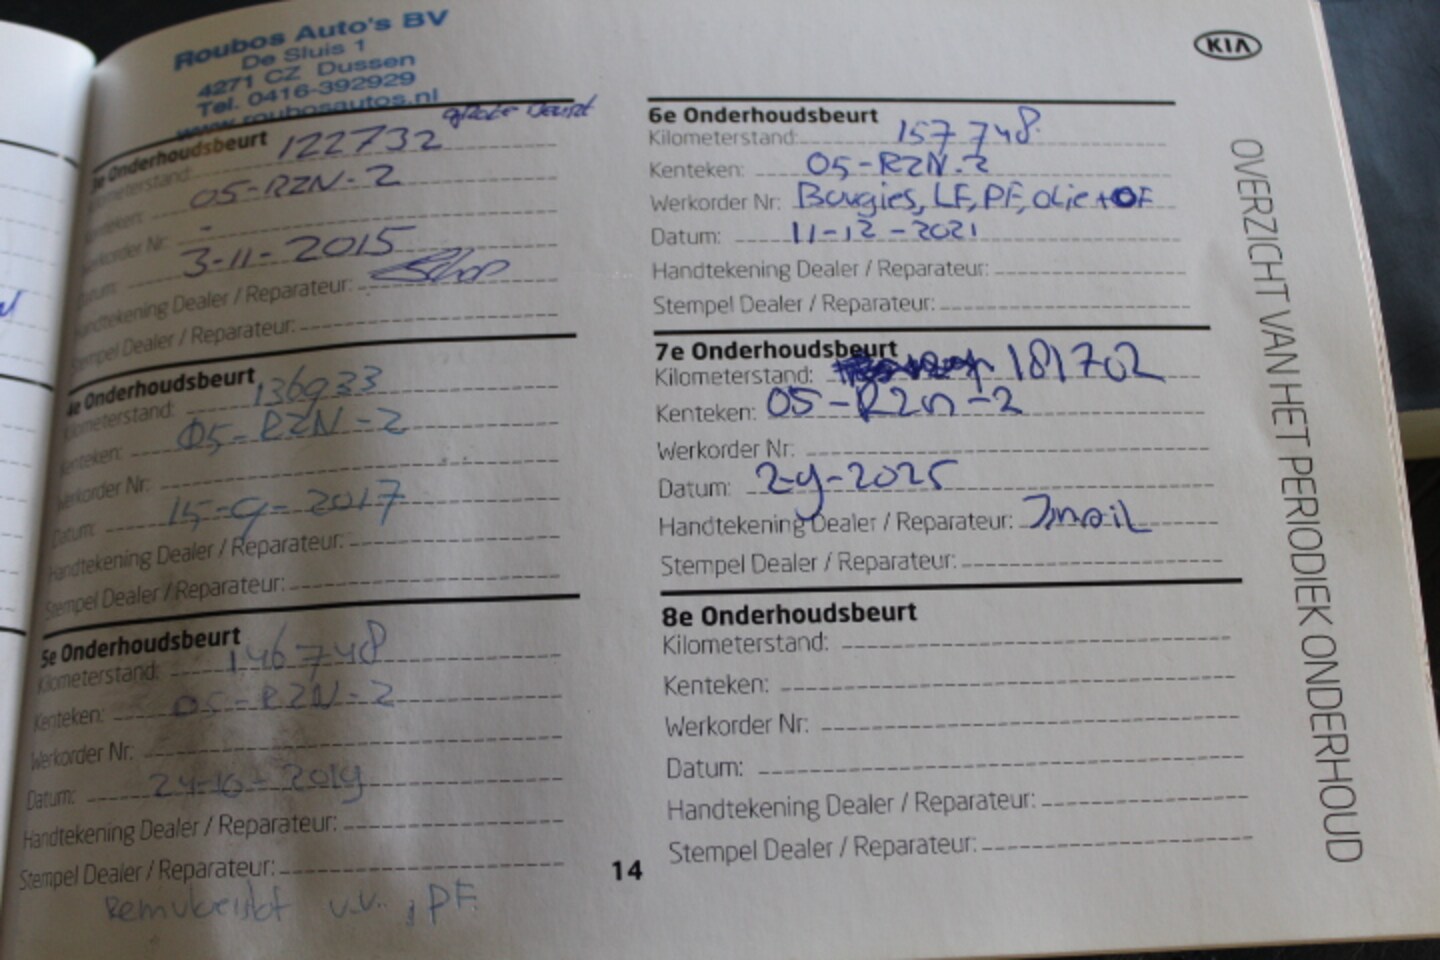 Roubos Auto's BV
De Sluis 1
4271 CZ Dussen
Tel. 0416-392929
www.roubosautos.nl
grote beurt
3e Onderhoudsbeurt
Kilometerstand: 122732
Kenteken: 05-RZN-2
Werkorder Nr: -
Datum: 3-11-2015
Handtekening Dealer / Reparateur:
Stempel Dealer / Reparateur:
4e Onderhoudsbeurt
Kilometerstand: 136933
Kenteken: 05-RZN-2
Werkorder Nr:
Datum: 15-9-2017
Handtekening Dealer / Reparateur:
Stempel Dealer / Reparateur:
5e Onderhoudsbeurt
Kilometerstand: 146748
Kenteken: 05-RZN-2
Werkorder Nr:
Datum: 24-10-2019
Handtekening Dealer / Reparateur:
Stempel Dealer / Reparateur:
v.v., PF
14
KIA
6e Onderhoudsbeurt
Kilometerstand: 157748
Kenteken: 05-RZN-2
Werkorder Nr: Bougies, LF, PF, olie + OF
Datum: 11-12-2021
Handtekening Dealer / Reparateur:
Stempel Dealer / Reparateur:
7e Onderhoudsbeurt
Kilometerstand: 181702
Kenteken: 05-RZn-2
Werkorder Nr:
Datum: 2-9-2025
Handtekening Dealer / Reparateur: Imail
Stempel Dealer / Reparateur:
8e Onderhoudsbeurt
Kilometerstand:
Kenteken:
Werkorder Nr:
Datum:
Handtekening Dealer / Reparateur:
Stempel Dealer / Reparateur:
OVERZICHT VAN HET PERIODIEK ONDERHOUD